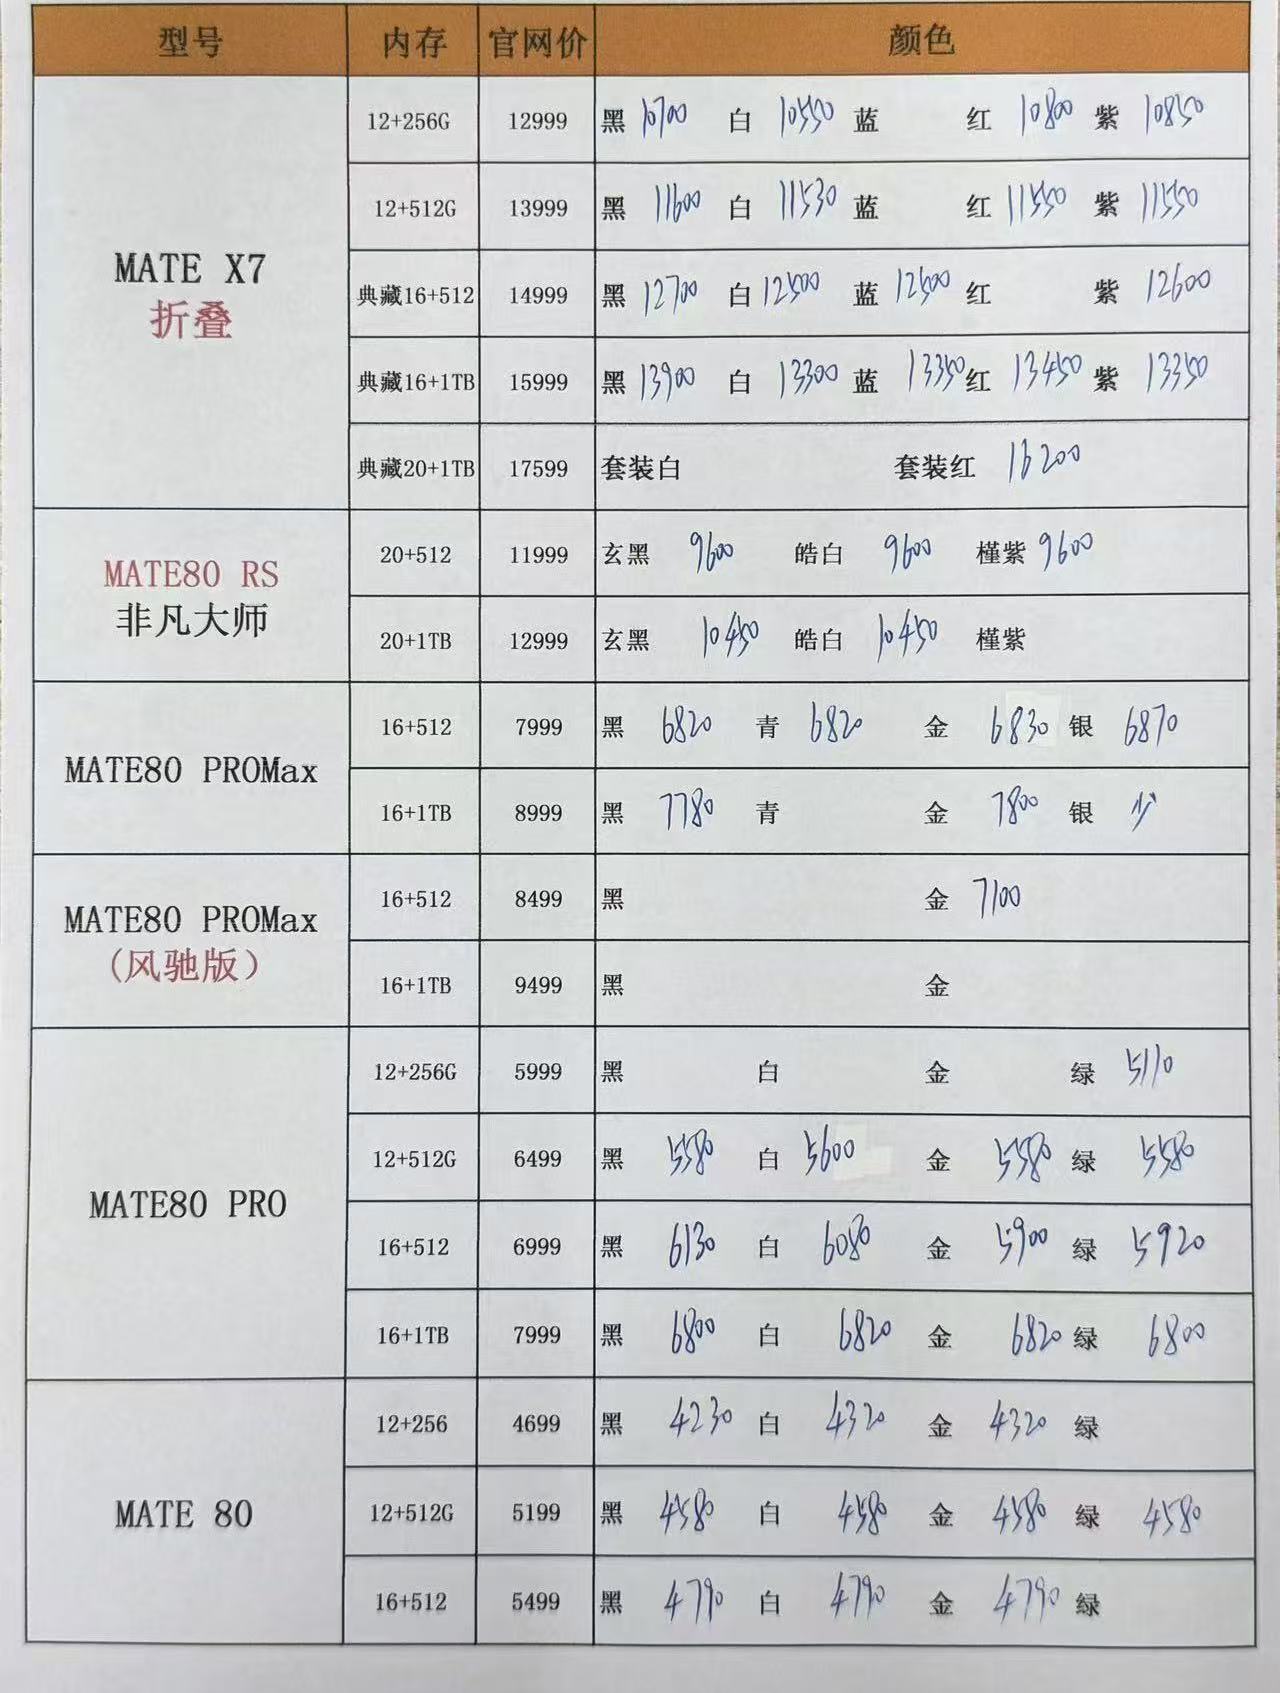 型号 内存 官网价 颜色
MATE X7
折叠
12+256G 12999 黑 10700 白 10550 蓝 红 10800 紫 10850
12+512G 13999 黑 11600 白 11530 蓝 红 11550 紫 11550
典藏16+512 14999 黑 12700 白 12500 蓝 12500 红 紫 12600
典藏16+1TB 15999 黑 13900 白 13300 蓝 13350 红 13450 紫 13350
典藏20+1TB 17599 套装白 套装红 16200
MATE80 RS
非凡大师
20+512 11999 玄黑 9600 皓白 9600 槿紫 9600
20+1TB 12999 玄黑 10450 皓白 10450 槿紫
MATE80 PROMax
16+512 7999 黑 6820 青 6820 金 6830 银 6870
16+1TB 8999 黑 7780 青 金 7800 银 少
MATE80 PROMax
(风驰版)
16+512 8499 黑 金 7100
16+1TB 9499 黑 金
MATE80 PRO
12+256G 5999 黑 白 金 绿 5110
12+512G 6499 黑 5580 白 5600 金 5580 绿 5580
16+512 6999 黑 6130 白 6080 金 5900 绿 5920
16+1TB 7999 黑 6800 白 6820 金 6820 绿 6800
MATE 80
12+256 4699 黑 4230 白 4320 金 4320 绿
12+512G 5199 黑 4580 白 4580 金 4580 绿 4580
16+512 5499 黑 4790 白 4790 金 4790 绿